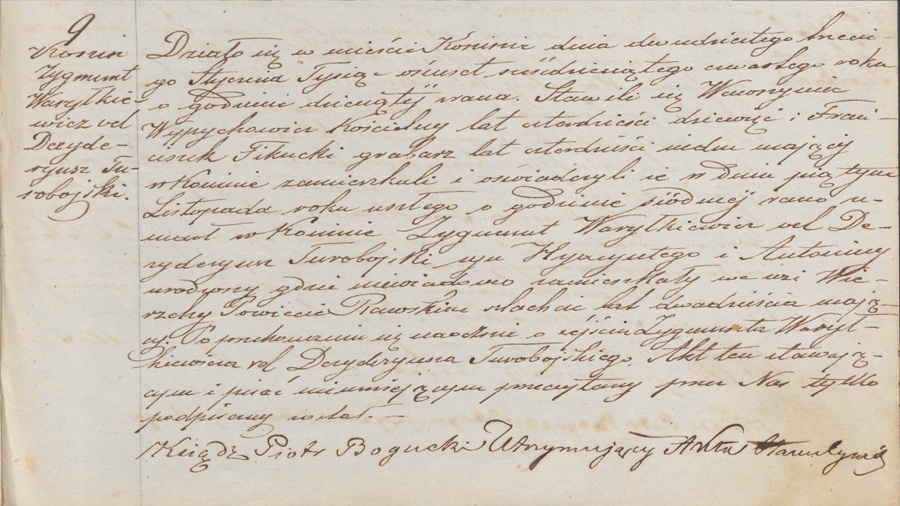 9
Konin
Zygmunt
Waryłkie-
wicz vel
Dezyde-
ryusz Tu-
robojski.
Działo się w mieście Koninie dnia dwudziestego trzecie-
go Stycznia Tysiąc ośmset sześdziesiątego czwartego roku
o godzinie dziesiątéj zrana. Stawili się Wawrzyniec
Wypychowicz Kościelny lat czterdzieści dziewięć i Fran-
ciszek Fikucki grabarz lat czterdzieści siedm mający
w Koninie zamieszkali i oświadczyli że w dniu piątym
Listopada roku zeszłego o godzinie siódméj rano u-
marł w Koninie Zygmunt Waryłkiewicz vel De-
zyderyusz Turobojski syn Hyacyntego i Antoniny
urodzony gdzie niewiadomo zamieszkały we wsi Wie-
rzchy Powiecie Rawskim szlachcic lat dwadzieścia mają-
cy. Po przekonaniu się naocznie o zejściu Zygmunta Warył-
kiewicza vel Dezyderyusza Turobojskiego. Akt ten stawają-
cym i pisać nieumiejącym przeczytany przez Nas tylko
podpisany został. —
Xiądz Piotr Bogucki Utrzymujący Akta Stanu Cywil